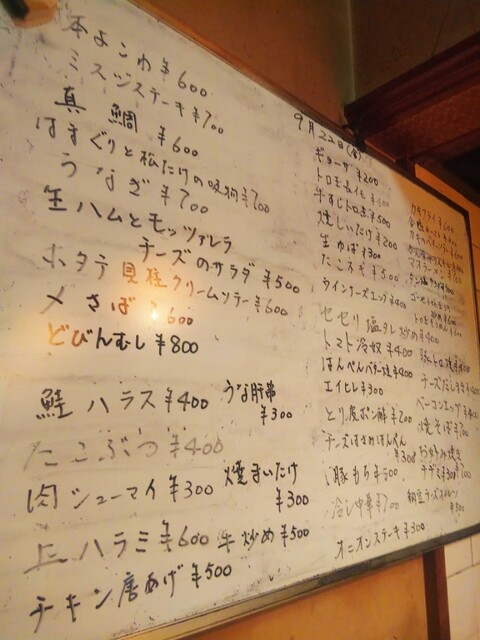 本よこわ ¥600
ミスジステーキ ¥700
真鯛 ¥600
はまぐりと松たけの吸物 ¥700
うなぎ ¥700
生ハムとモッツァレラ
チーズのサラダ ¥500
ホタテ貝柱クリームソテー ¥600
〆さば ¥600
どびんむし ¥800
鮭ハラス ¥400
うな肝串
¥300
たこぶつ ¥400
肉シューマイ ¥300
焼まいたけ
¥300
上ハラミ ¥600
牛炒め ¥500
チキン唐あげ ¥500
9月22日(金)
ギョーザ ¥200
トロ玉
牛すじトロ玉 ¥500
焼しいたけ ¥200
生ゆば ¥300
たこネギ ¥500
ウインナーエッグ ¥400
セセリ塩タレ炒め ¥400
トマト冷奴 ¥400
はんぺんバター焼 ¥400
エイヒレ ¥300
とり皮ポン酢 ¥200
チーズはさみはんぺん
¥300
豚もち ¥500
冷し中華 ¥700
オニオンステーキ ¥300
カキフライ ¥600
チーズ
ベーコンエッグ
焼そば ¥700
お好み焼き
納豆チーズオムレツ
¥500